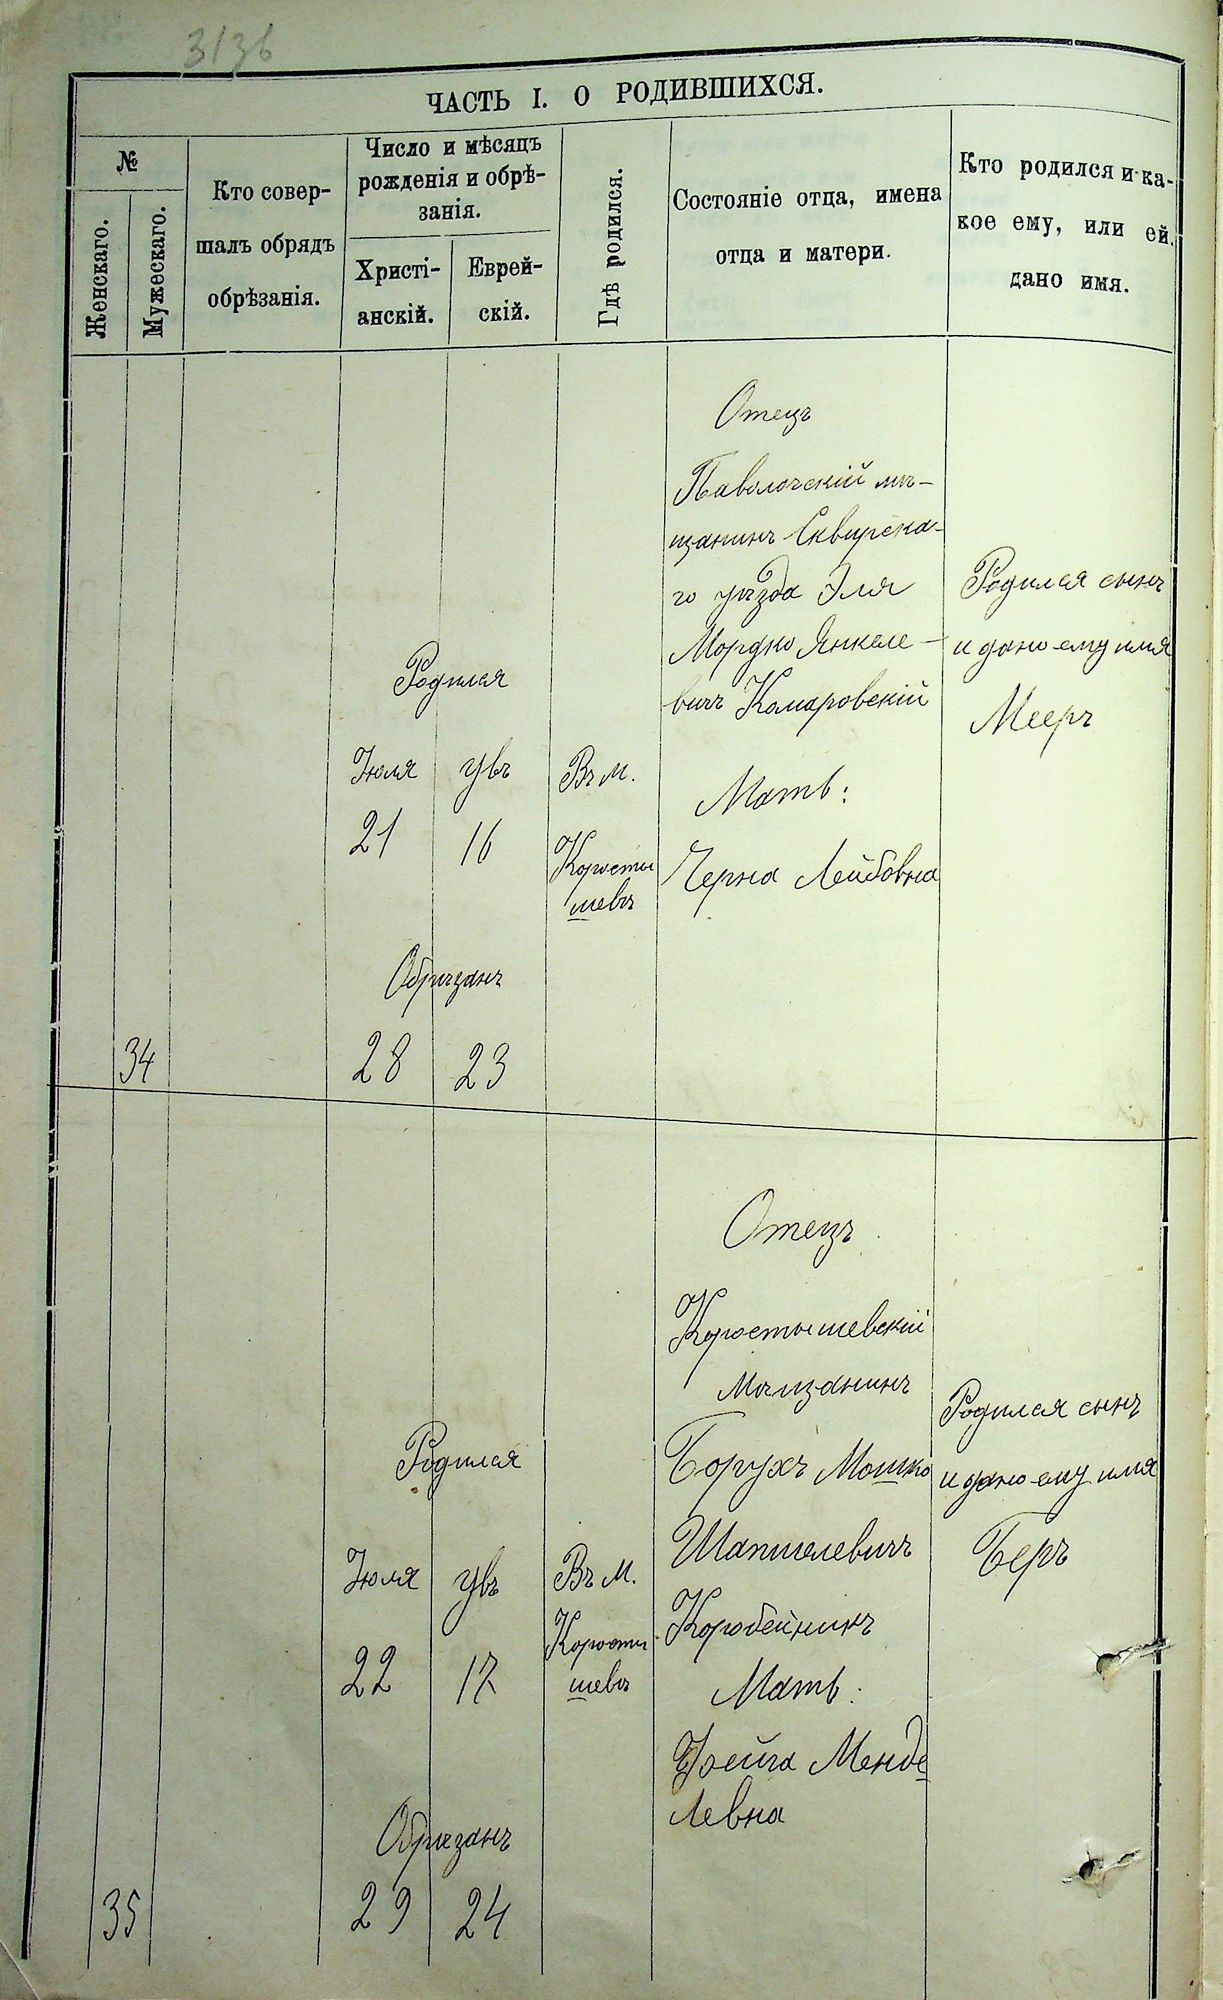 3136
ЧАСТЬ I. О РОДИВШИХСЯ.
№
Женскаго.
Мужескаго.
Кто совер-
шалъ обрядъ
обрѣзанія.
Число и мѣсяцъ
рожденія и обрѣ-
занія.
Христі-
анскій.
Еврей-
скій.
Гдѣ родился.
Состояніе отца, имена
отца и матери.
Кто родился и ка-
кое ему, или ей,
дано имя.
34
Родился
Іюля
21
16
Обрѣзанъ
28
23
Въ м.
Коросты
шевѣ
Отецъ
Паволочскій мѣ-
щанинъ Сквирска-
го уѣзда Эля
Мордко Янкеле-
вичъ Комаровскій
Мать:
Черна Лейбовна
Родился сынъ
и дано ему имя
Мееръ
35
Родился
Іюля
22
17
Обрѣзанъ
29
24
Въ м.
Коросты
шевѣ
Отецъ
Коростышевскій
Мѣщанинъ
Борухъ Мошко
Шапшелевичъ
Коробейникъ
Мать:
Менде
левна
Родился сынъ
и дано ему имя
Беръ